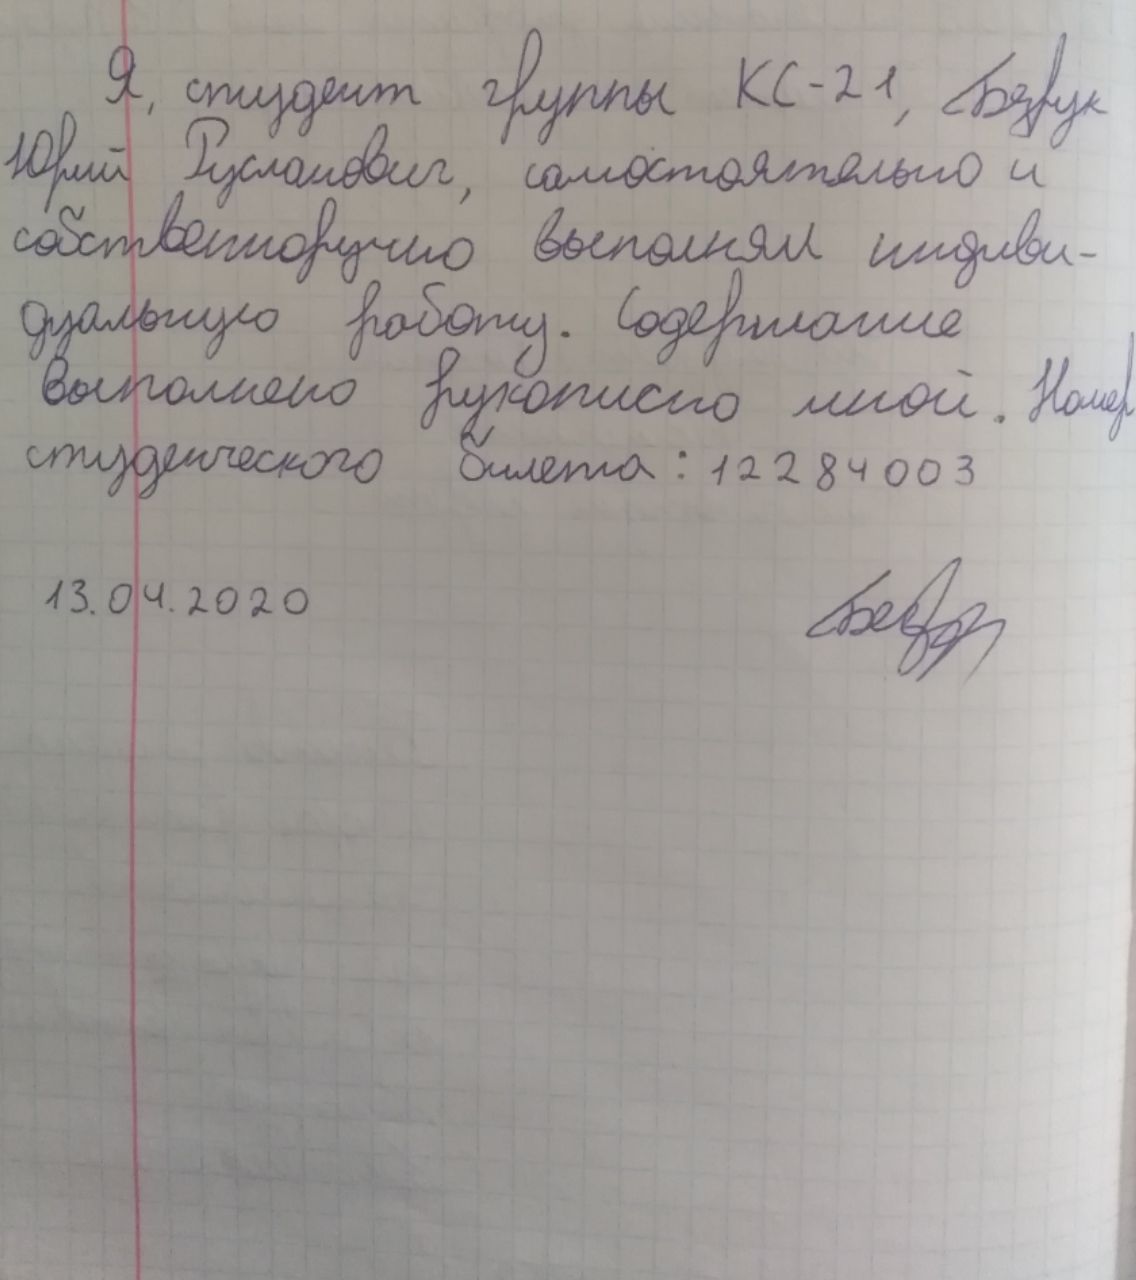 Я, студент группы КС-21, Безрук
Юрий Русланович, самостоятельно и
собственноручно выполнял индиви-
дуальную работу. Содержание
выполнено рукописно мной. Номер
студенческого билета: 12284003
13.04.2020